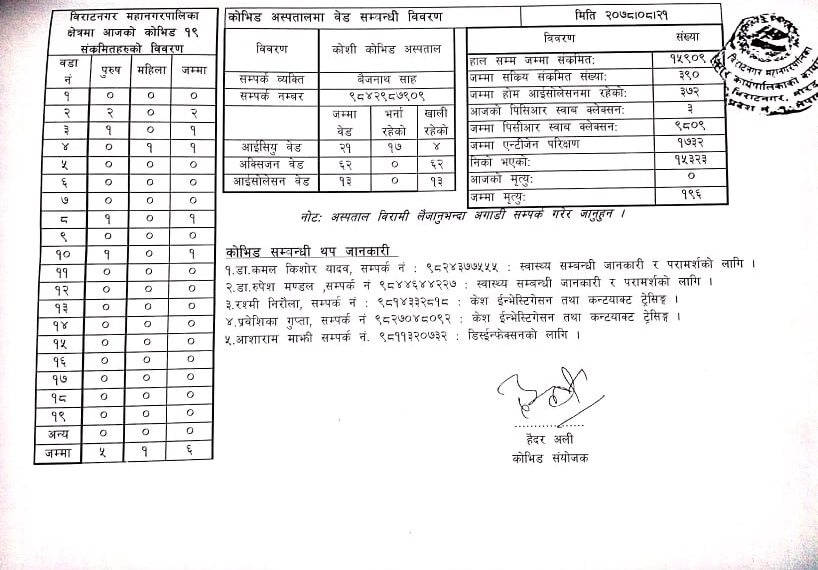 विराटनगर महानगरपालिका
क्षेत्रमा आजको कोभिड १९
संक्रमितहरुको विवरण
वडा नं पुरुष महिला जम्मा
१ ० ० ०
२ २ ० २
३ १ ० १
४ ० १ १
५ ० ० ०
६ ० ० ०
७ ० ० ०
८ १ ० १
९ ० ० ०
१० १ ० १
११ ० ० ०
१२ ० ० ०
१३ ० ० ०
१४ ० ० ०
१५ ० ० ०
१६ ० ० ०
१७ ० ० ०
१८ ० ० ०
१९ ० ० ०
अन्य ० ० ०
जम्मा ५ १ ६
कोभिड अस्पतालमा वेड सम्वन्धी विवरण
मिति २०७८।०८।२१
विवरण कोशी कोभिड अस्पताल
सम्पर्क व्यक्ति बैजनाथ साह
सम्पर्क नम्बर ९८४२९८७९०९
जम्मा वेड भर्ना रहेको खाली रहेको
आईसियु वेड २१ १७ ४
अक्सिजन वेड ६२ ० ६२
आईसोलेसन वेड १३ ० १३
विवरण संख्या
हाल सम्म जम्मा संक्रमित: १५९०९
जम्मा सक्रिय संक्रमित संख्या: ३९०
जम्मा होम आईसोलेसनमा रहेको: ३७२
आजको पिसिआर स्वाब क्लेक्सन: ३
जम्मा पिसीआर स्वाब क्लेक्सन: ९८०९
जम्मा एन्टीजिन परिक्षण १७३२
निको भएको: १५३२३
आजको मृत्यु: ०
जम्मा मृत्यु: १९६
नोट: अस्पताल विरामी लैजानुभन्दा अगाडी सम्पर्क गरेर जानुहुन ।
कोभिड सम्वन्धी थप जानकारी
१.डा.कमल किशोर यादव, सम्पर्क नं : ९८२४३७७५५५ : स्वास्थ्य सम्बन्धी जानकारी र परामर्शको लागि ।
२.डा.रुपेश मण्डल ,सम्पर्क नं ९८४४६४४२२७ : स्वास्थ्य सम्बन्धी जानकारी र परामर्शको लागि ।
३.रश्मी निरौला, सम्पर्क नं : ९८१४३३२८१८ : केश ईन्भेस्टिगेसन तथा कन्टयाक्ट ट्रेसिङ्ग ।
४.प्रबेशिका गुप्ता, सम्पर्क नं ९८२७०४८०९२ : केश ईन्भेस्टिगेसन तथा कन्टयाक्ट ट्रेसिङ्ग ।
५.आशाराम माझी सम्पर्क नं. ९८११३२०७३२ : डिस्ईन्फेक्सनको लागि ।
हैदर अली
कोभिड संयोजक